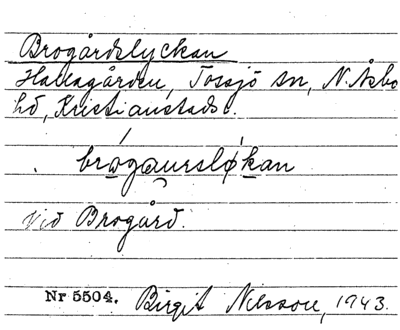 Brogårdslyckan
Hallagården, Tossjö sn, N. Åsbo
hd, Kristianstads l.
brøgaursløkan
vid Brogård.
Nr 5504. Birgit Nilsson, 1943.